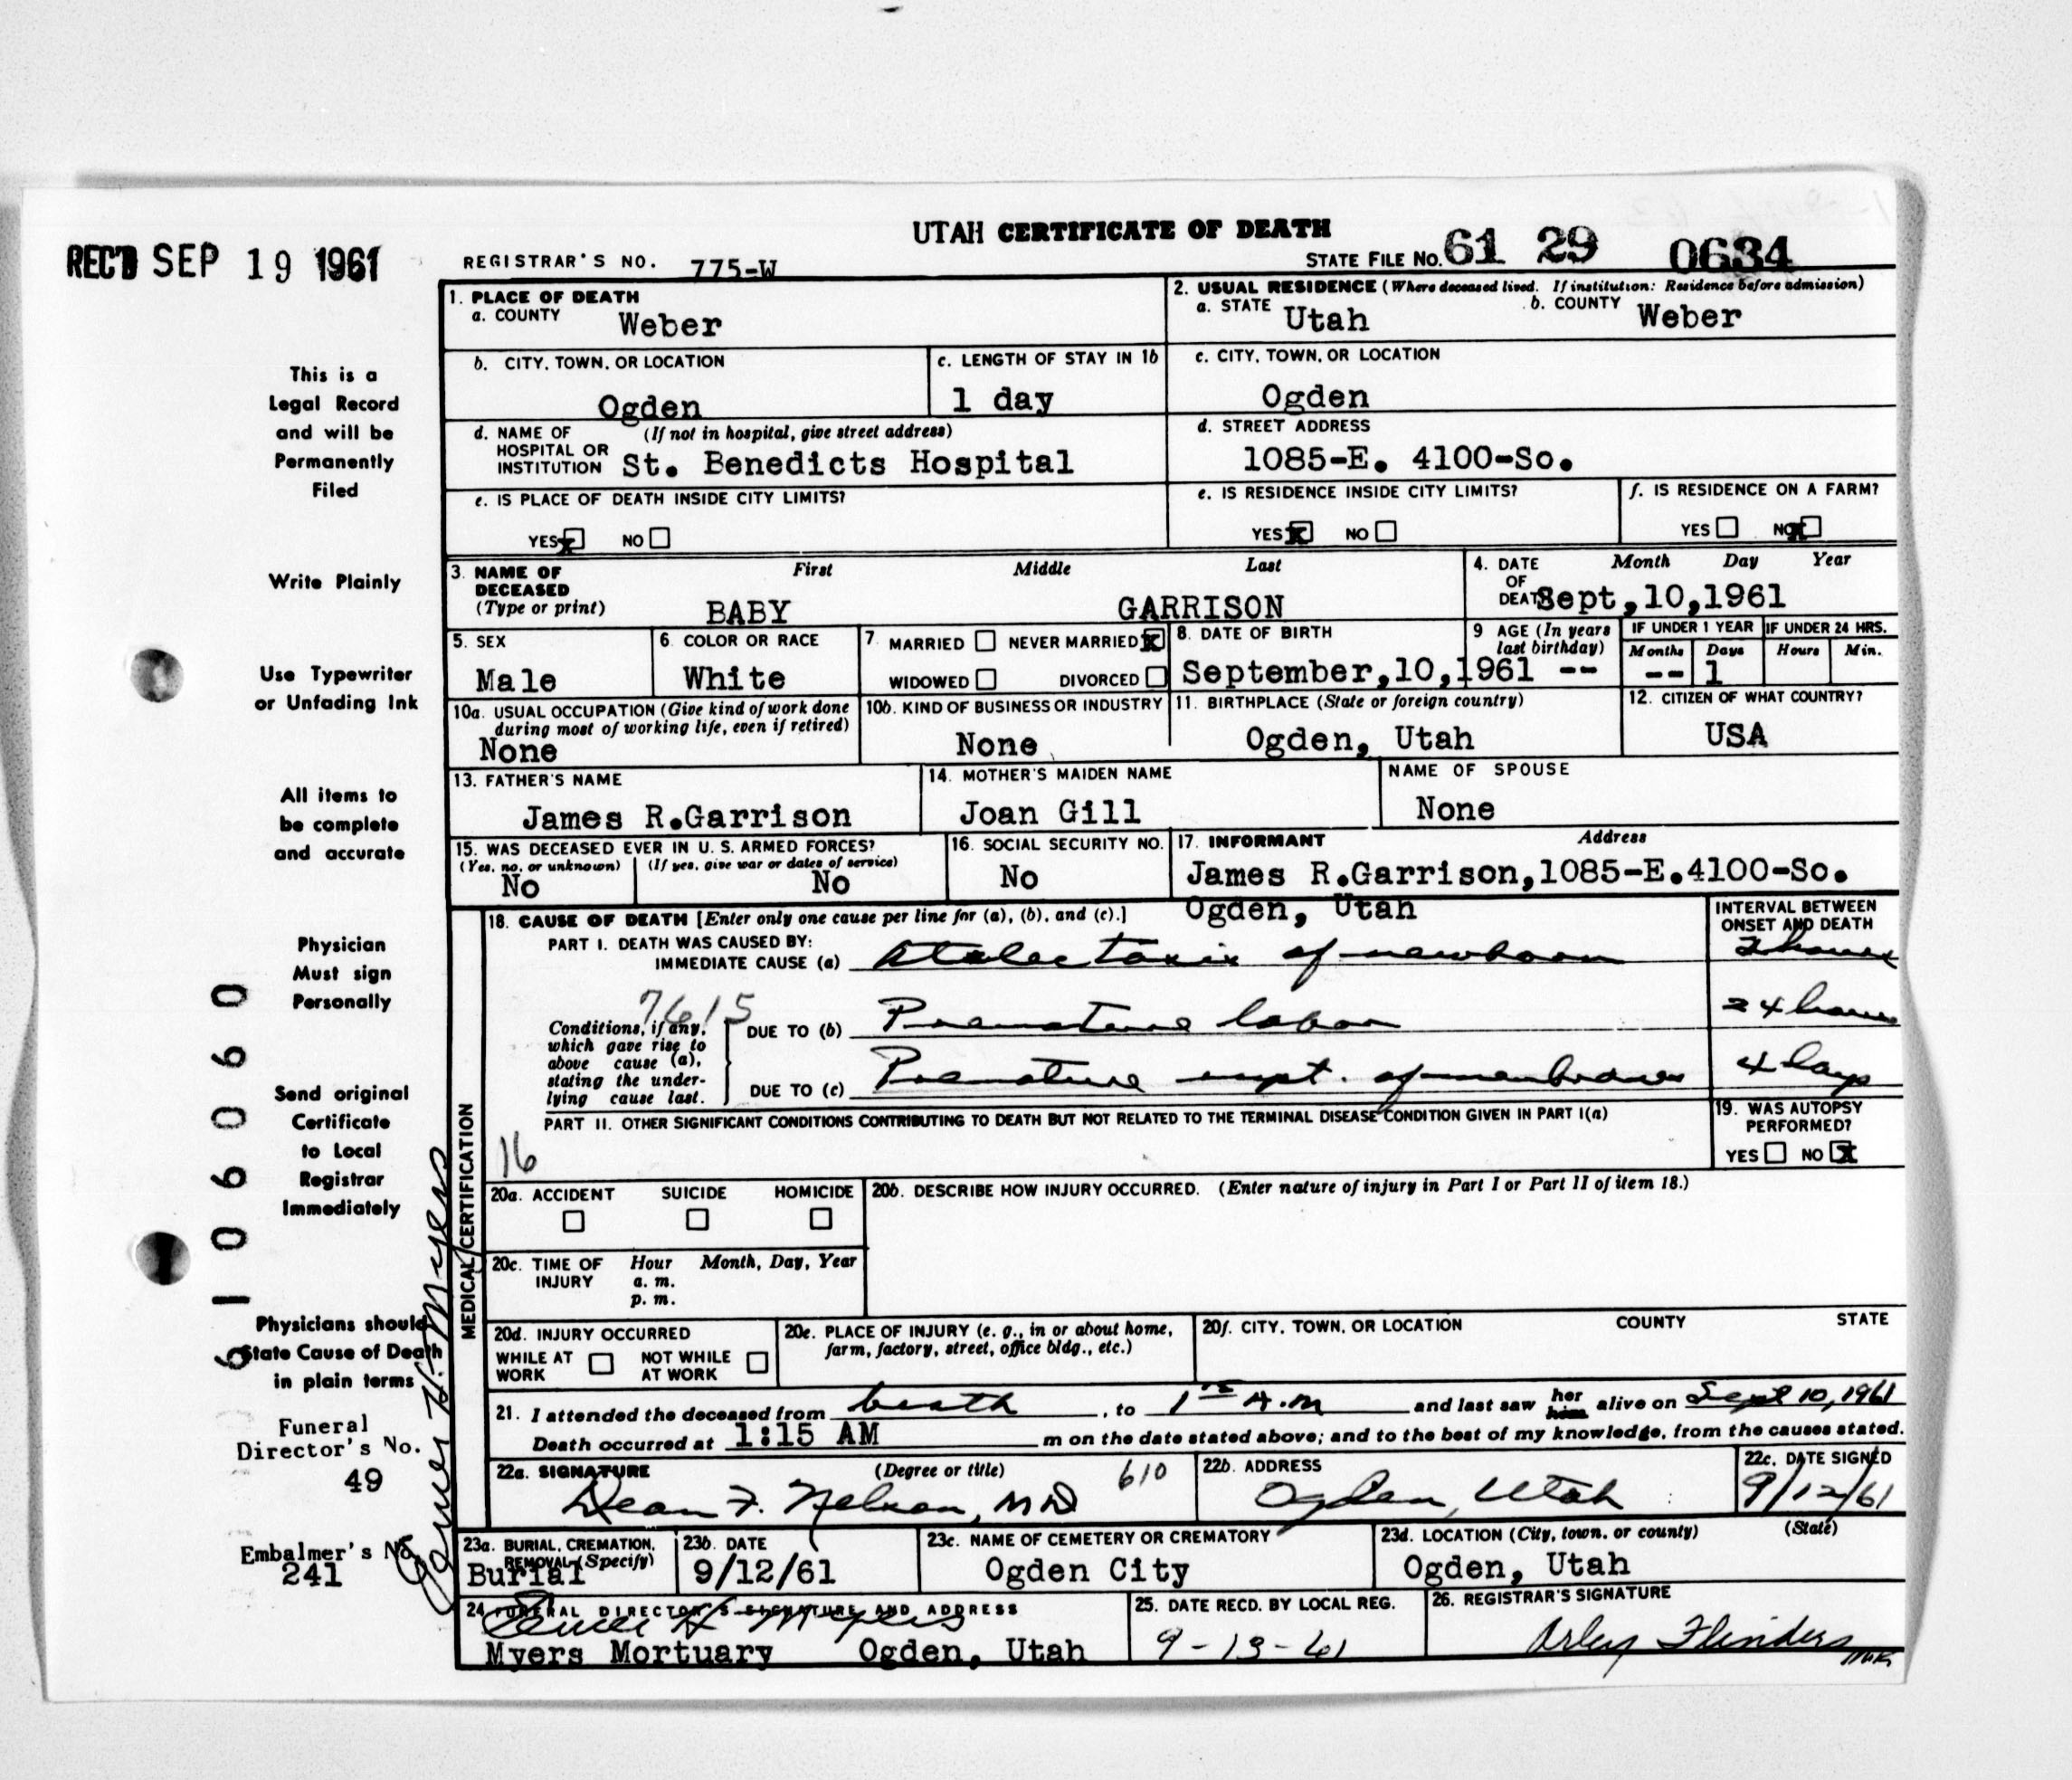 UTAH CERTIFICATE OF DEATH
REC'D SEP 19 1961
REGISTRAR'S NO. 775-W
STATE FILE NO. 61 29 0634
1. PLACE OF DEATH
a. COUNTY Weber
2. USUAL RESIDENCE (Where deceased lived. If institution: Residence before admission)
a. STATE Utah b. COUNTY Weber
b. CITY, TOWN, OR LOCATION
Ogden
c. LENGTH OF STAY IN 1b
1 day
c. CITY, TOWN, OR LOCATION
Ogden
d. NAME OF HOSPITAL OR INSTITUTION (If not in hospital, give street address)
St. Benedicts Hospital
d. STREET ADDRESS
1085-E. 4100-So.
e. IS PLACE OF DEATH INSIDE CITY LIMITS?
YES x NO
e. IS RESIDENCE INSIDE CITY LIMITS?
YES x NO
f. IS RESIDENCE ON A FARM?
YES NO x
3. NAME OF DECEASED (Type or print)
First Middle Last
BABY GARRISON
4. DATE OF DEATH Month Day Year
Sept,10,1961
5. SEX
Male
6. COLOR OR RACE
White
7. MARRIED NEVER MARRIED x
WIDOWED DIVORCED
8. DATE OF BIRTH
September,10,1961
9 AGE (In years last birthday)
--
IF UNDER 1 YEAR
Months Days
-- 1
IF UNDER 24 HRS.
Hours Min.
10a. USUAL OCCUPATION (Give kind of work done during most of working life, even if retired)
None
10b. KIND OF BUSINESS OR INDUSTRY
None
11. BIRTHPLACE (State or foreign country)
Ogden, Utah
12. CITIZEN OF WHAT COUNTRY?
USA
13. FATHER'S NAME
James R.Garrison
14. MOTHER'S MAIDEN NAME
Joan Gill
NAME OF SPOUSE
None
15. WAS DECEASED EVER IN U. S. ARMED FORCES?
(Yes, no, or unknown) (If yes, give war or dates of service)
No No
16. SOCIAL SECURITY NO.
No
17. INFORMANT Address
James R.Garrison,1085-E.4100-So.
Ogden, Utah
18. CAUSE OF DEATH [Enter only one cause per line for (a), (b), and (c).]
INTERVAL BETWEEN ONSET AND DEATH
PART I. DEATH WAS CAUSED BY:
IMMEDIATE CAUSE (a) Atalectasis of newborn 2 hours
7615
Conditions, if any, which gave rise to above cause (a), stating the underlying cause last.
DUE TO (b) Premature labor 24 hours
DUE TO (c) Premature rupt. of membranes 4 days
PART II. OTHER SIGNIFICANT CONDITIONS CONTRIBUTING TO DEATH BUT NOT RELATED TO THE TERMINAL DISEASE CONDITION GIVEN IN PART I(a)
16
19. WAS AUTOPSY PERFORMED?
YES NO x
MEDICAL CERTIFICATION
20a. ACCIDENT SUICIDE HOMICIDE
20b. DESCRIBE HOW INJURY OCCURRED. (Enter nature of injury in Part I or Part II of item 18.)
20c. TIME OF INJURY Hour Month, Day, Year
a. m.
p. m.
20d. INJURY OCCURRED
WHILE AT WORK NOT WHILE AT WORK
20e. PLACE OF INJURY (e. g., in or about home, farm, factory, street, office bldg., etc.)
20f. CITY, TOWN, OR LOCATION COUNTY STATE
21. I attended the deceased from birth, to 1 15 A.m and last saw her him alive on Sept 10, 1961
Death occurred at 1:15 AM m on the date stated above; and to the best of my knowledge, from the causes stated.
22a. SIGNATURE (Degree or title)
Dean F. Nelson, MD
610
22b. ADDRESS
Ogden, Utah
22c. DATE SIGNED
9/12/61
23a. BURIAL, CREMATION, REMOVAL (Specify)
Burial
23b. DATE
9/12/61
23c. NAME OF CEMETERY OR CREMATORY
Ogden City
23d. LOCATION (City, town, or county) (State)
Ogden, Utah
24 FUNERAL DIRECTOR'S SIGNATURE AND ADDRESS
Myers Mortuary Ogden, Utah
25. DATE RECD. BY LOCAL REG.
9-13-61
26. REGISTRAR'S SIGNATURE
Arley Flinders
This is a
Legal Record
and will be
Permanently
Filed
Write Plainly
Use Typewriter
or Unfading Ink
All items to
be complete
and accurate
Physician
Must sign
Personally
Send original
Certificate
to Local
Registrar
Immediately
Physicians should
State Cause of Death
in plain terms
Funeral
Director's No.
49
Embalmer's No.
241
6106060